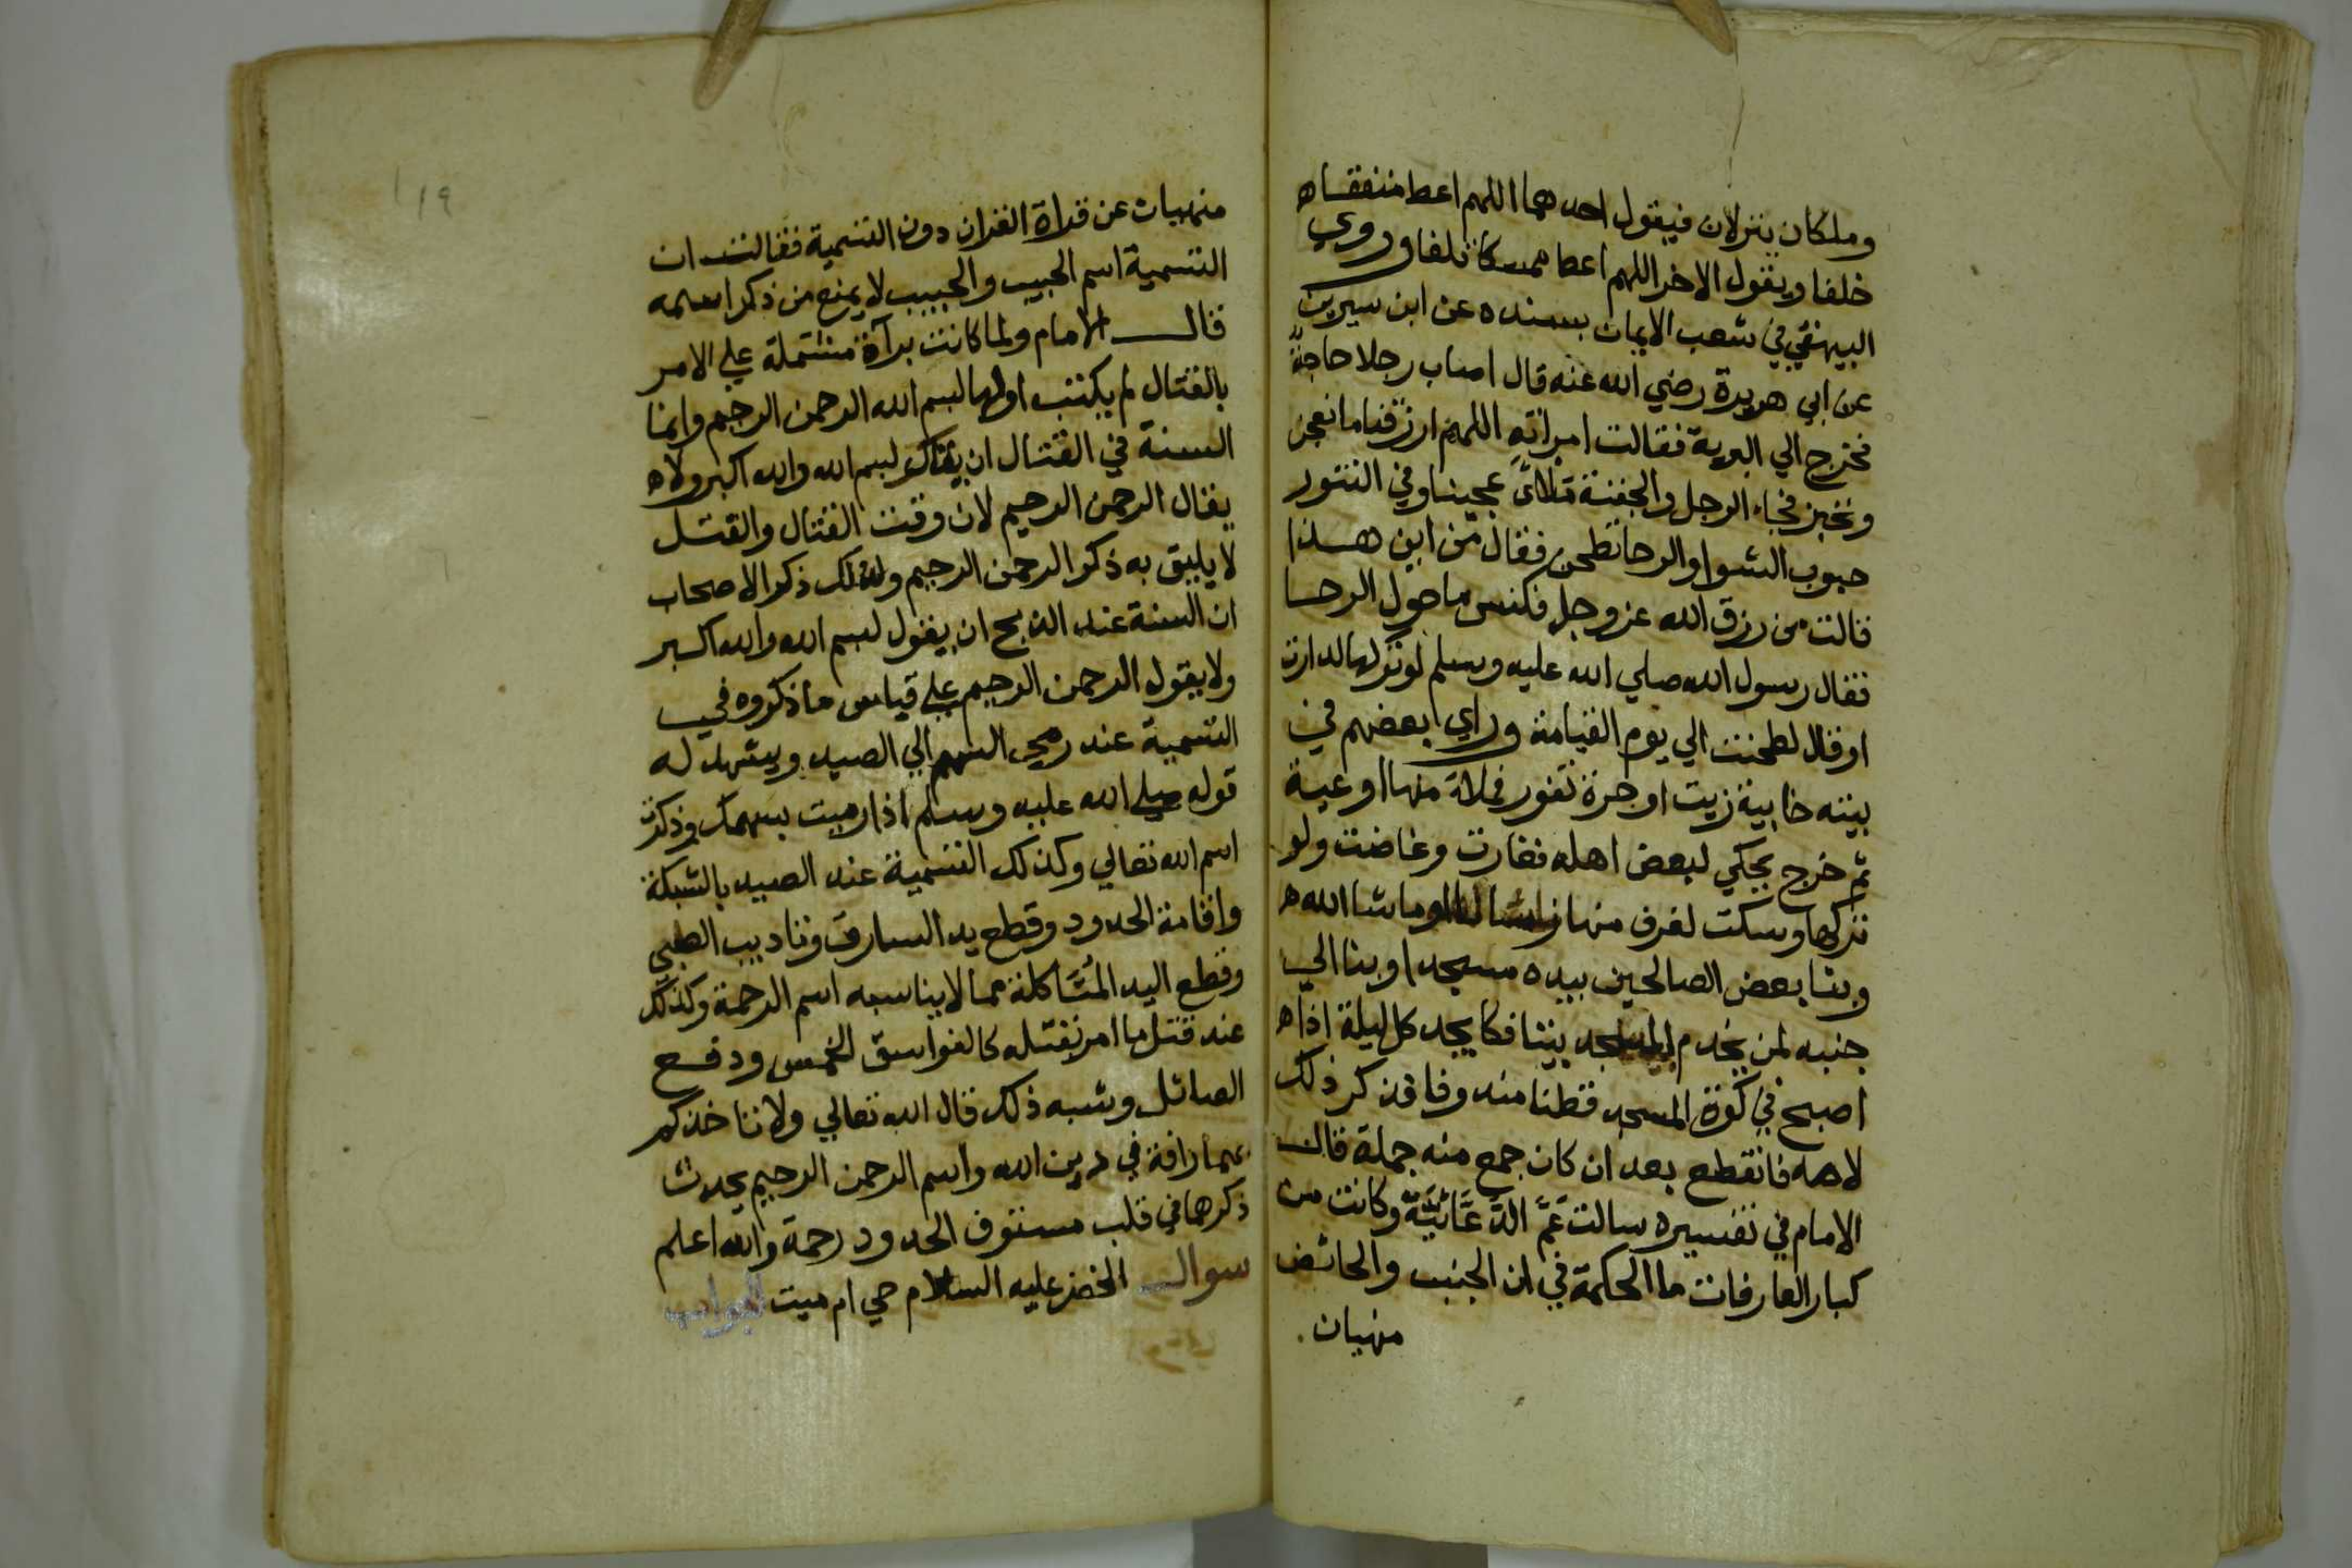 وملكان ينزلان فيقول احدهما اللهم اعط منفقا
خلفا ويقول الاخر اللهم اعط ممسكا تلفا وروي
البيهقي في شعب الايمان بسنده عن ابن سيرين
عن ابي هريرة رضي الله عنه قال اصاب رجلا حاجة
فخرج الي البرية فقالت امراته اللهم ارزقنا ما نعجن
ونخبز فجاء الرجل والجفنة ملأى عجينا وفي التنور
جبوب الشوا والرحا تطحن فقال من اين هذا
قالت من رزق الله عز وجل فكنس ما حول الرحا
فقال رسول الله صلي الله عليه وسلم لو تركها لدارت
او قال لطحنت الي يوم القيامة وراي بعضهم في
بيته خابية زيت او جرة تفور فملاة منها اوعية
ثم خرج يحكي لبعض اهله فغارت وغاضت ولو
تركها وسكت لغرف منها ما شا الله
وبنا بعض الصالحين بيده مسجدا وبنا الي
جنبه لمن يخدم المسجد بيتا فكا يجد كل ليلة اذا
اصبح في كوة المسجد قطنا مندوفا فذكر ذلك
لاهله فانقطع بعد ان كان جمع منه جملة قال
الامام في تفسيره سالت وكانت من
كبار العارفات ما الحكمة في ان الجنب والحائض
منهيان
١١٩
منهيات عن قراة القران دون التسمية فقالت ان
التسمية اسم الحبيب والحبيب لا يمنع من ذكر اسمه
قال الامام ولما كانت برآة مشتملة علي الامر
بالقتال لم يكتب اولها بسم الله الرحمن الرحيم وانما
السنة في القتال ان يقال بسم الله والله اكبر ولا
يقال الرحمن الرحيم لان وقت القتال والقتل
لا يليق به ذكر الرحمن الرحيم ولذلك ذكر الاصحاب
ان السنة عند الذبح ان يقول بسم الله والله اكبر
ولا يقول الرحمن الرحيم علي قياس ما ذكروه في
التسمية عند رمي السهم الي الصيد ويشهد له
قوله صلي الله عليه وسلم اذا رميت بسهمك وذكرت
اسم الله تعالي وكذلك التسمية عند الصيد بالشبكة
واقامة الحدود وقطع يد السارق وتاديب الصبي
وقطع اليد المتاكلة مما لا يناسبه اسم الرحمة وكذلك
عند قتل ما امر بقتله كالفواسق الخمس ودفع
الصائل وشبه ذلك قال الله تعالي ولا تاخذكم
بهما رافة في دين الله واسم الرحمن الرحيم يحدث
ذكرهما في قلب مستوف الحدود رحمة والله اعلم
سوال الخضر عليه السلام حي ام ميت الجواب